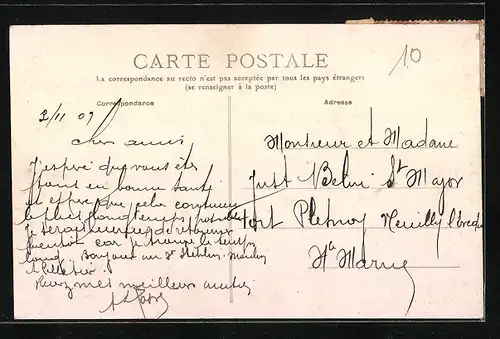 10
CARTE POSTALE
La correspondance au recto n'est pas acceptée par tous les pays étrangers
(se renseigner à la poste)
Correspondance
Adresse
2/11 09
Cher amis
J'espère que vous êtes
en bonne santé
et espère que cela continuera
le plus longtemps possible
je serai heureux de
car je trouve le temps
long. Bonjour au
Recevez mes meilleurs amitiés
Monsieur et Madame
Just Belui St Major
Fort Plesnoy Neuilly l'évêque
Hte Marne